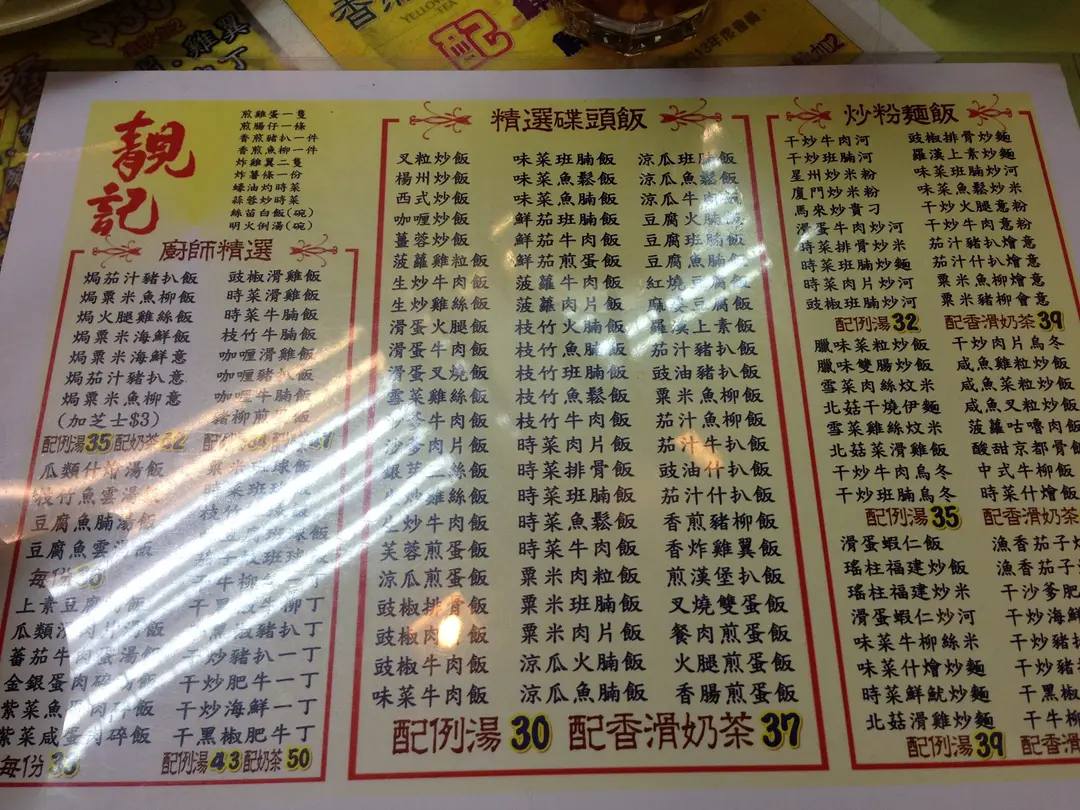 靚記
煎雞蛋一隻
煎腸仔一條
香煎豬扒一件
香煎魚柳一件
炸雞翼二隻
炸薯條一份
蠔油灼時菜
蒜蓉炒時菜
絲苗白飯(碗)
明火例湯(碗)
廚師精選
焗茄汁豬扒飯 豉椒滑雞飯
焗粟米魚柳飯 時菜滑雞飯
焗火腿雞絲飯 時菜牛腩飯
焗粟米海鮮飯 枝竹牛腩飯
焗粟米海鮮意 咖喱滑雞飯
焗茄汁豬扒意 咖喱豬扒飯
焗粟米魚柳意 咖喱牛腩飯
(加芝士$3)
配例湯35配奶茶42
瓜類什燴湯飯
豆腐魚腩湯飯
豆腐魚雲湯飯
每份
上素豆腐
干牛柳
干黑椒牛柳丁
干黑椒豬扒丁
干炒豬扒一丁
金銀蛋肉碎 干炒肥牛一丁
紫菜魚蛋肉碎飯 干炒海鮮一丁
紫菜咸蛋肉碎飯 干黑椒肥牛丁
每份 配例湯43配奶茶50
精選碟頭飯
叉粒炒飯 味菜班腩飯 涼瓜班腩飯
楊州炒飯 味菜魚鬆飯 涼瓜魚鬆飯
西式炒飯 味菜魚腩飯 涼瓜牛肉飯
咖喱炒飯 鮮茄班腩飯 豆腐火腩飯
薑蓉炒飯 鮮茄牛肉飯 豆腐班腩飯
菠蘿雞粒飯 鮮茄煎蛋飯 豆腐魚腩飯
生炒牛肉飯 菠蘿牛肉飯 紅燒豆腐飯
生炒雞絲飯 菠蘿肉片飯 麻婆豆腐飯
滑蛋火腿飯 枝竹火腩飯 羅漢上素飯
滑蛋牛肉飯 枝竹魚腩飯 茄汁豬扒飯
滑蛋叉燒飯 枝竹班腩飯 豉油豬扒飯
雪菜雞絲飯 枝竹魚鬆飯 粟米魚柳飯
牛肉飯 枝竹牛肉飯 茄汁魚柳飯
沙爹肉片飯 時菜肉片飯 茄汁牛扒飯
銀芽三絲飯 時菜排骨飯 豉油什扒飯
生炒雞絲飯 時菜班腩飯 茄汁什扒飯
生炒牛肉飯 時菜魚鬆飯 香煎豬柳飯
芙蓉煎蛋飯 時菜牛肉飯 香炸雞翼飯
涼瓜煎蛋飯 粟米肉粒飯 煎漢堡扒飯
豉椒排骨飯 粟米班腩飯 叉燒雙蛋飯
豉椒肉片飯 粟米肉片飯 餐肉煎蛋飯
豉椒牛肉飯 涼瓜火腩飯 火腿煎蛋飯
味菜牛肉飯 涼瓜魚腩飯 香腸煎蛋飯
配例湯30 配香滑奶茶37
炒粉麵飯
干炒牛肉河 豉椒排骨炒麵
干炒班腩河 羅漢上素炒麵
星州炒米粉 味菜班腩炒河
廈門炒米粉 味菜魚鬆炒米
馬來炒貴刁 干炒火腿意粉
滑蛋牛肉炒河 干炒牛肉意粉
時菜排骨炒米 茄汁豬扒燴意
時菜班腩炒麵 茄汁什扒燴意
時菜肉片炒河 粟米魚柳燴意
豉椒班腩炒河 粟米豬柳會意
配例湯32 配香滑奶茶39
臘味菜粒炒飯 干炒肉片烏冬
臘味雙腸炒飯 咸魚雞粒炒飯
雪菜肉絲炆米 咸魚菜粒炒飯
北菇干燒伊麵 咸魚叉粒炒飯
雪菜雞絲炆米 菠蘿咕嚕肉飯
北菇菜滑雞飯 酸甜京都骨飯
干炒牛肉烏冬 中式牛柳飯
干炒班腩烏冬 時菜什燴飯
配例湯35 配香滑奶茶
滑蛋蝦仁飯 漁香茄子
瑤柱福建炒飯 漁香茄子
瑤柱福建炒米 干沙爹肥
滑蛋蝦仁炒河 干炒海鮮
味菜牛柳絲米 干炒豬
味菜什燴炒麵 干炒豬
時菜鮮魷炒麵 干黑椒
北菇滑雞炒麵 干牛柳
配例湯39 配香滑